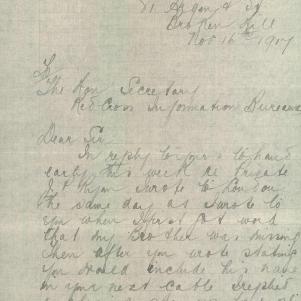 Broken Hill
Nov 16th 1917
To
The Hon Secretary
Red Cross Information Bureau
Dear Sir
In reply to yours to hand
early this week re Brigade
I wrote to London
the same day as I wrote to
you when I first got word
that my Brother was missing
then after you wrote stating
you would include his name
in your next cable I